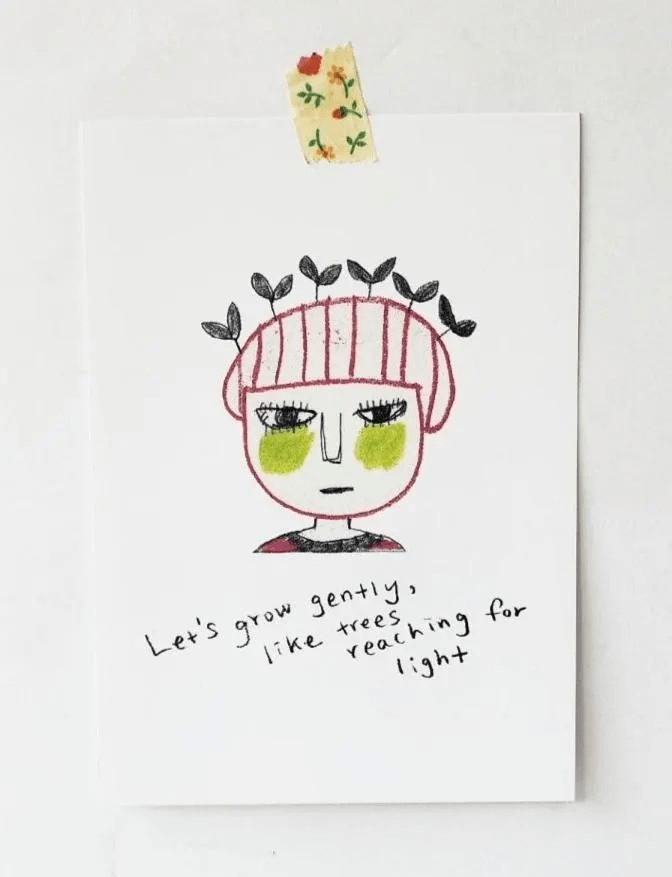 Let's grow gently,
like trees
reaching for
light